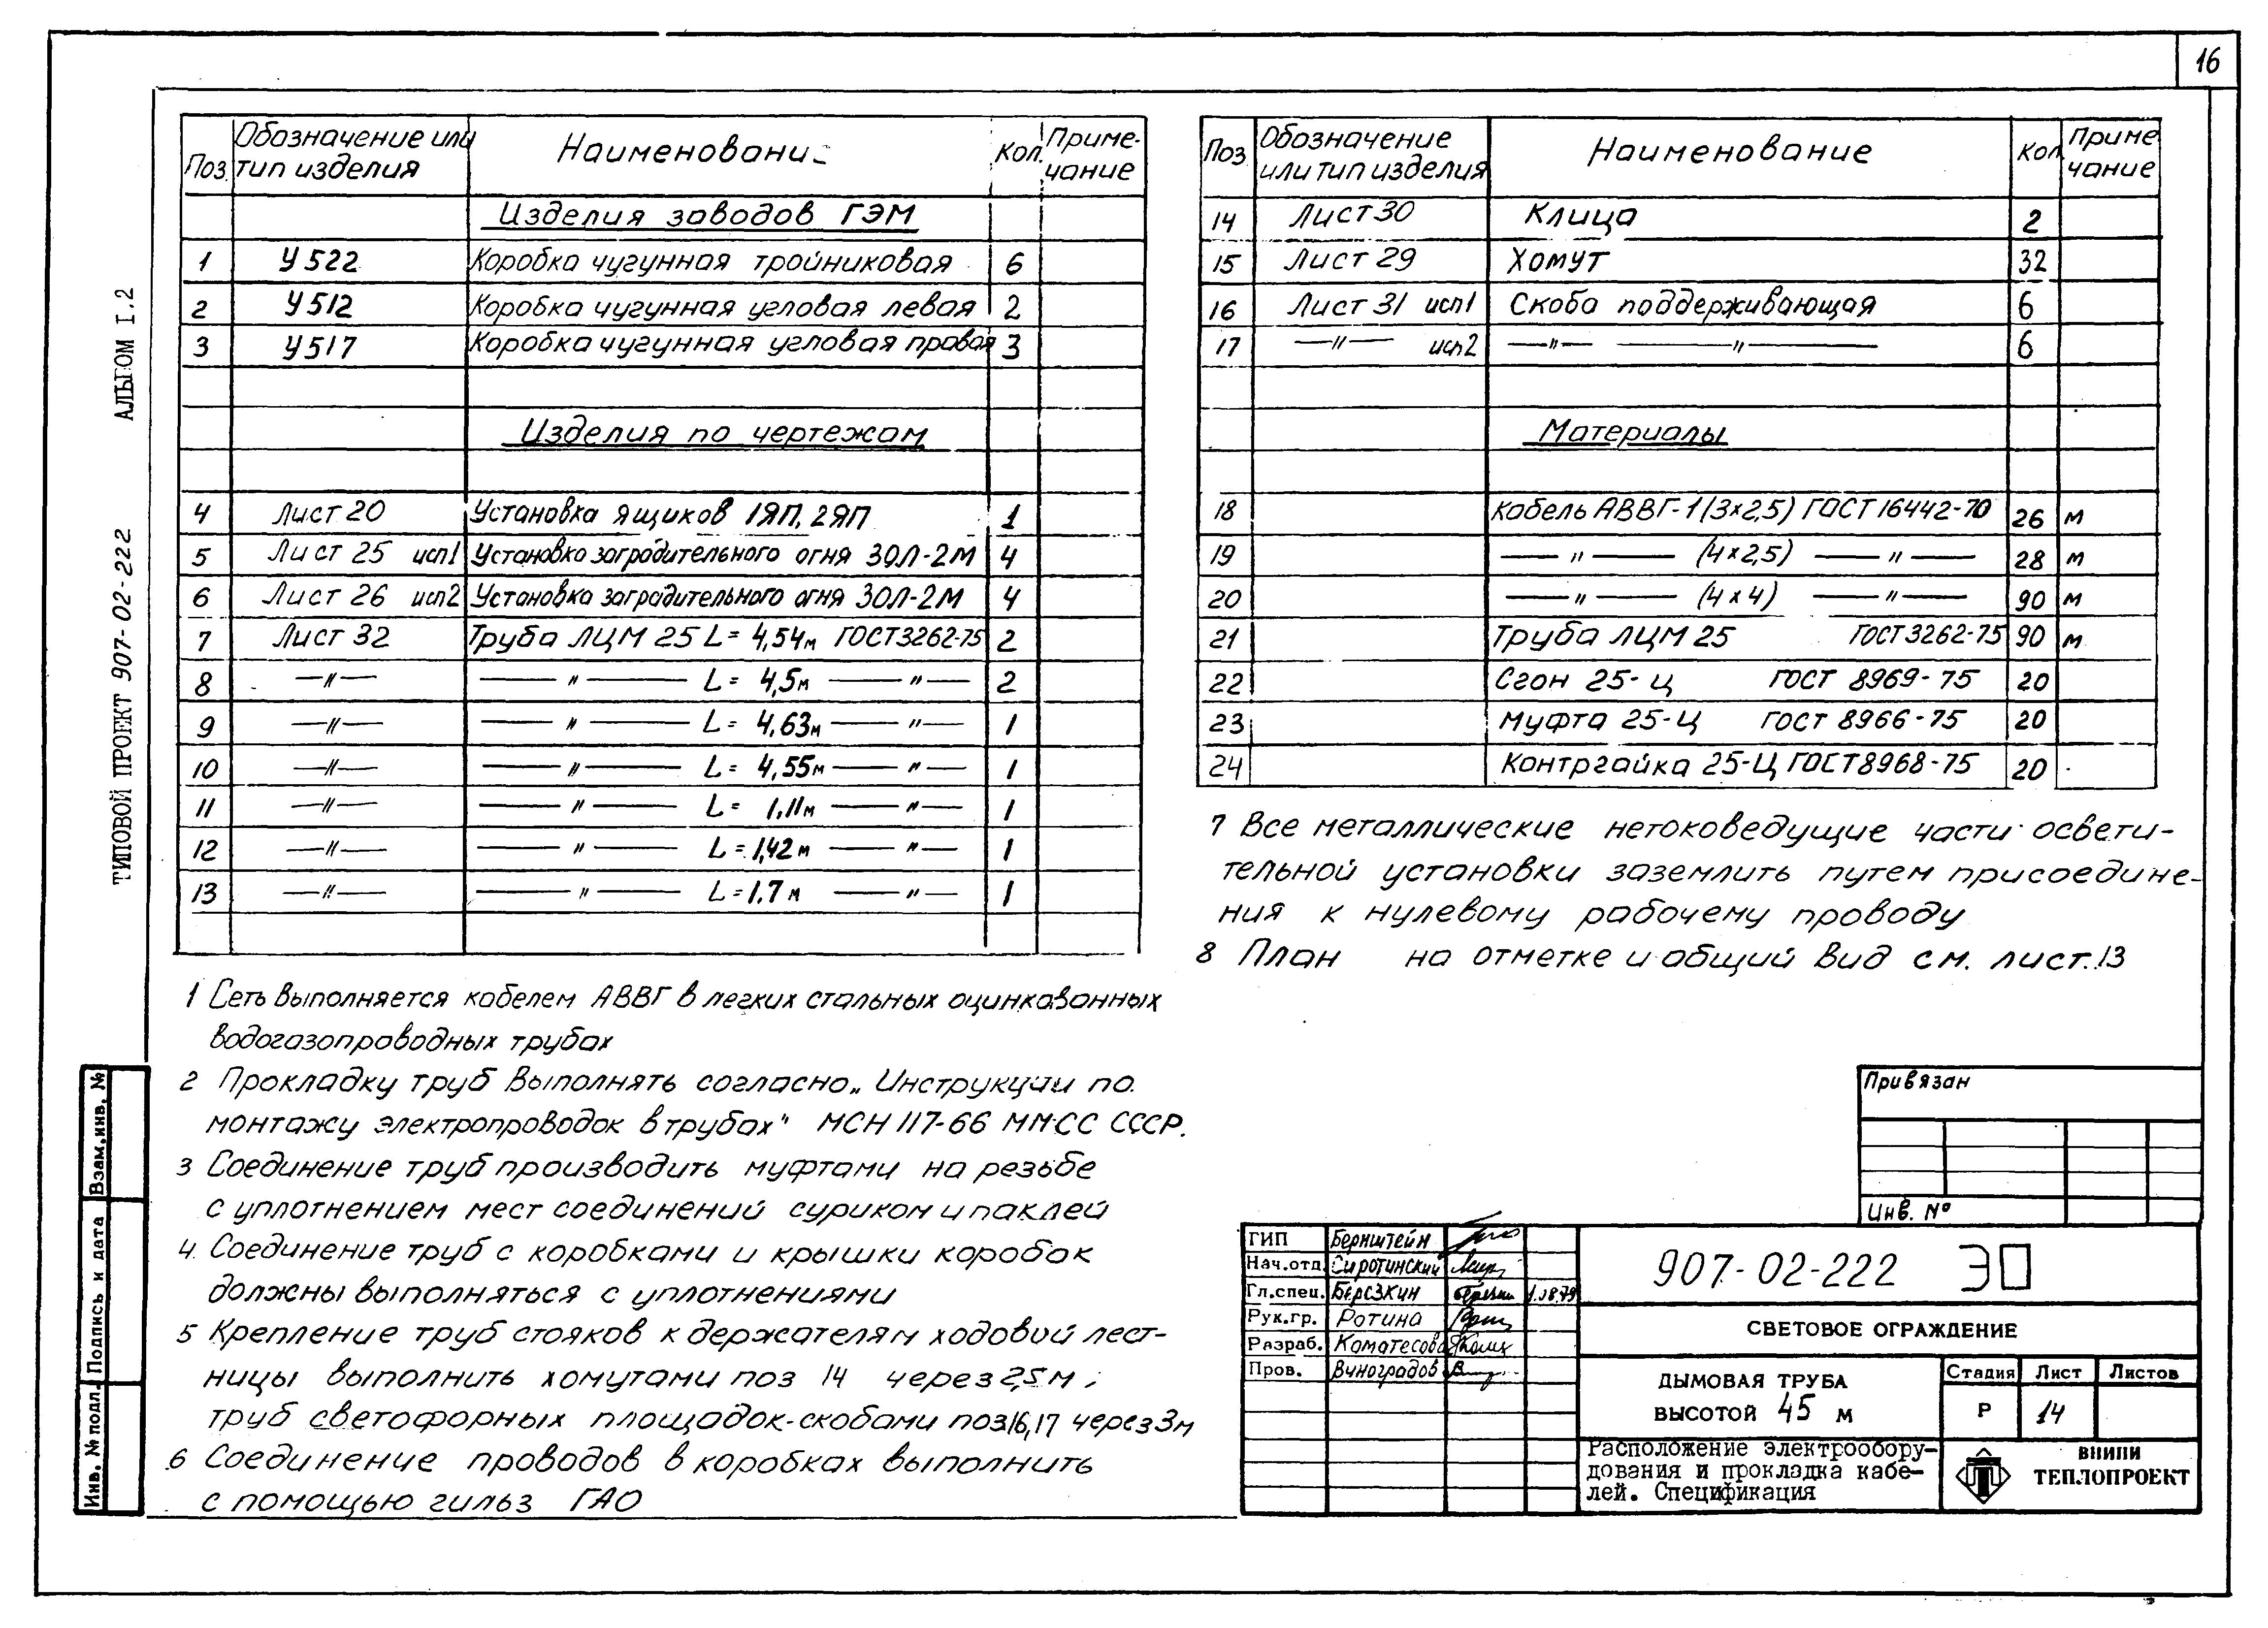 16
ТИПОВОЙ ПРОЕКТ 907-02-222 АЛЬБОМ I.2
Поз. Обозначение или тип изделия Наименовани Кол. Приме-чание
Изделия заводов ГЭМ
1 У522 Коробка чугунная тройниковая 6
2 У512 Коробка чугунная угловая левая 2
3 У517 Коробка чугунная угловая правая 3
Изделия по чертежам
4 Лист 20 Установка ящиков 1ЯП, 2ЯП 1
5 Лист 25 исп1 Установка заградительного огня ЗОЛ-2М 4
6 Лист 26 исп2 Установка заградительного огня ЗОЛ-2М 4
7 Лист 32 Труба ЛЦМ 25 L= 4,54м ГОСТ3262-75 2
8 —"— —"— L= 4,5м —"— 2
9 —"— —"— L= 4,63м —"— 1
10 —"— —"— L= 4,55м —"— 1
11 —"— —"— L= 1,11м —"— 1
12 —"— —"— L=1,42м —"— 1
13 —"— —"— L=1,7м —"— 1
1 Сеть выполняется кабелем АВВГ в легких стальных оцинкованных
водогазопроводных трубах
2 Прокладку труб выполнять согласно „Инструкции по
монтажу электропроводок в трубах" МСН 117-66 ММСС СССР.
3 Соединение труб производить муфтами на резьбе
с уплотнением мест соединений суриком и паклей
4. Соединение труб с коробками и крышки коробок
должны выполняться с уплотнениями
5 Крепление труб стояков к держателям ходовой лест-
ницы выполнить хомутами поз 14 через 2,5м,
труб светофорных площадок-скобами поз16,17 через 3м
6 Соединение проводов в коробках выполнить
с помощью гильз ГАО
Поз Обозначение или тип изделия Наименование Кол Приме чание
14 Лист 30 Клица 2
15 Лист 29 Хомут 32
16 Лист 31 исп1 Скоба поддерживающая 6
17 —"— исп2 —"— —"— 6
Материалы
18 Кабель АВВГ-1(3×2,5) ГОСТ 16442-70 26 м
19 —"— (4×2,5) —"— 28 м
20 —"— (4×4) —"— 90 м
21 Труба ЛЦМ 25 ГОСТ3262-75 90 м
22 Сгон 25-Ц ГОСТ 8969-75 20
23 Муфта 25-Ц ГОСТ 8966-75 20
24 Контргайка 25-Ц ГОСТ8968-75 20
7 Все металлические нетоковедущие части освети-
тельной установки заземлить путем присоедине-
ния к нулевому рабочему проводу
8 План на отметке и общий вид см. лист.13
Привязан
Инв. №
ГИП Бернштейн
Нач.отд. Сиротинский
Гл.спец. Березкин
Рук.гр. Ротина
Разраб. Коматесова
Пров. Виноградов
907-02-222 ЭО
СВЕТОВОЕ ОГРАЖДЕНИЕ
ДЫМОВАЯ ТРУБА
ВЫСОТОЙ 45 м
Стадия Лист Листов
Р 14
Расположение электрообору-
дования и прокладка кабе-
лей. Спецификация
ВНИПИ
ТЕПЛОПРОЕКТ
Инв. № подл. Подпись и дата Взам.инв. №